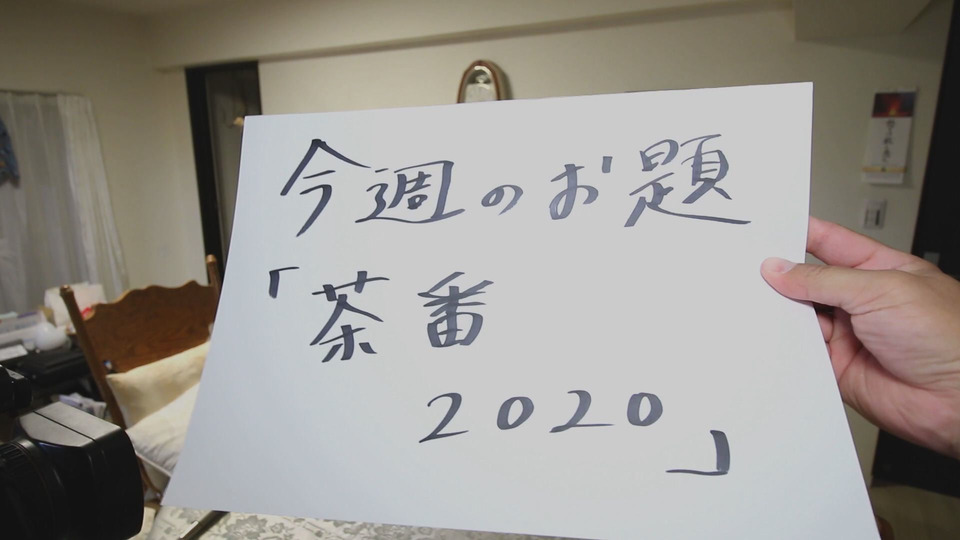 今週のお題
「茶番
2020」